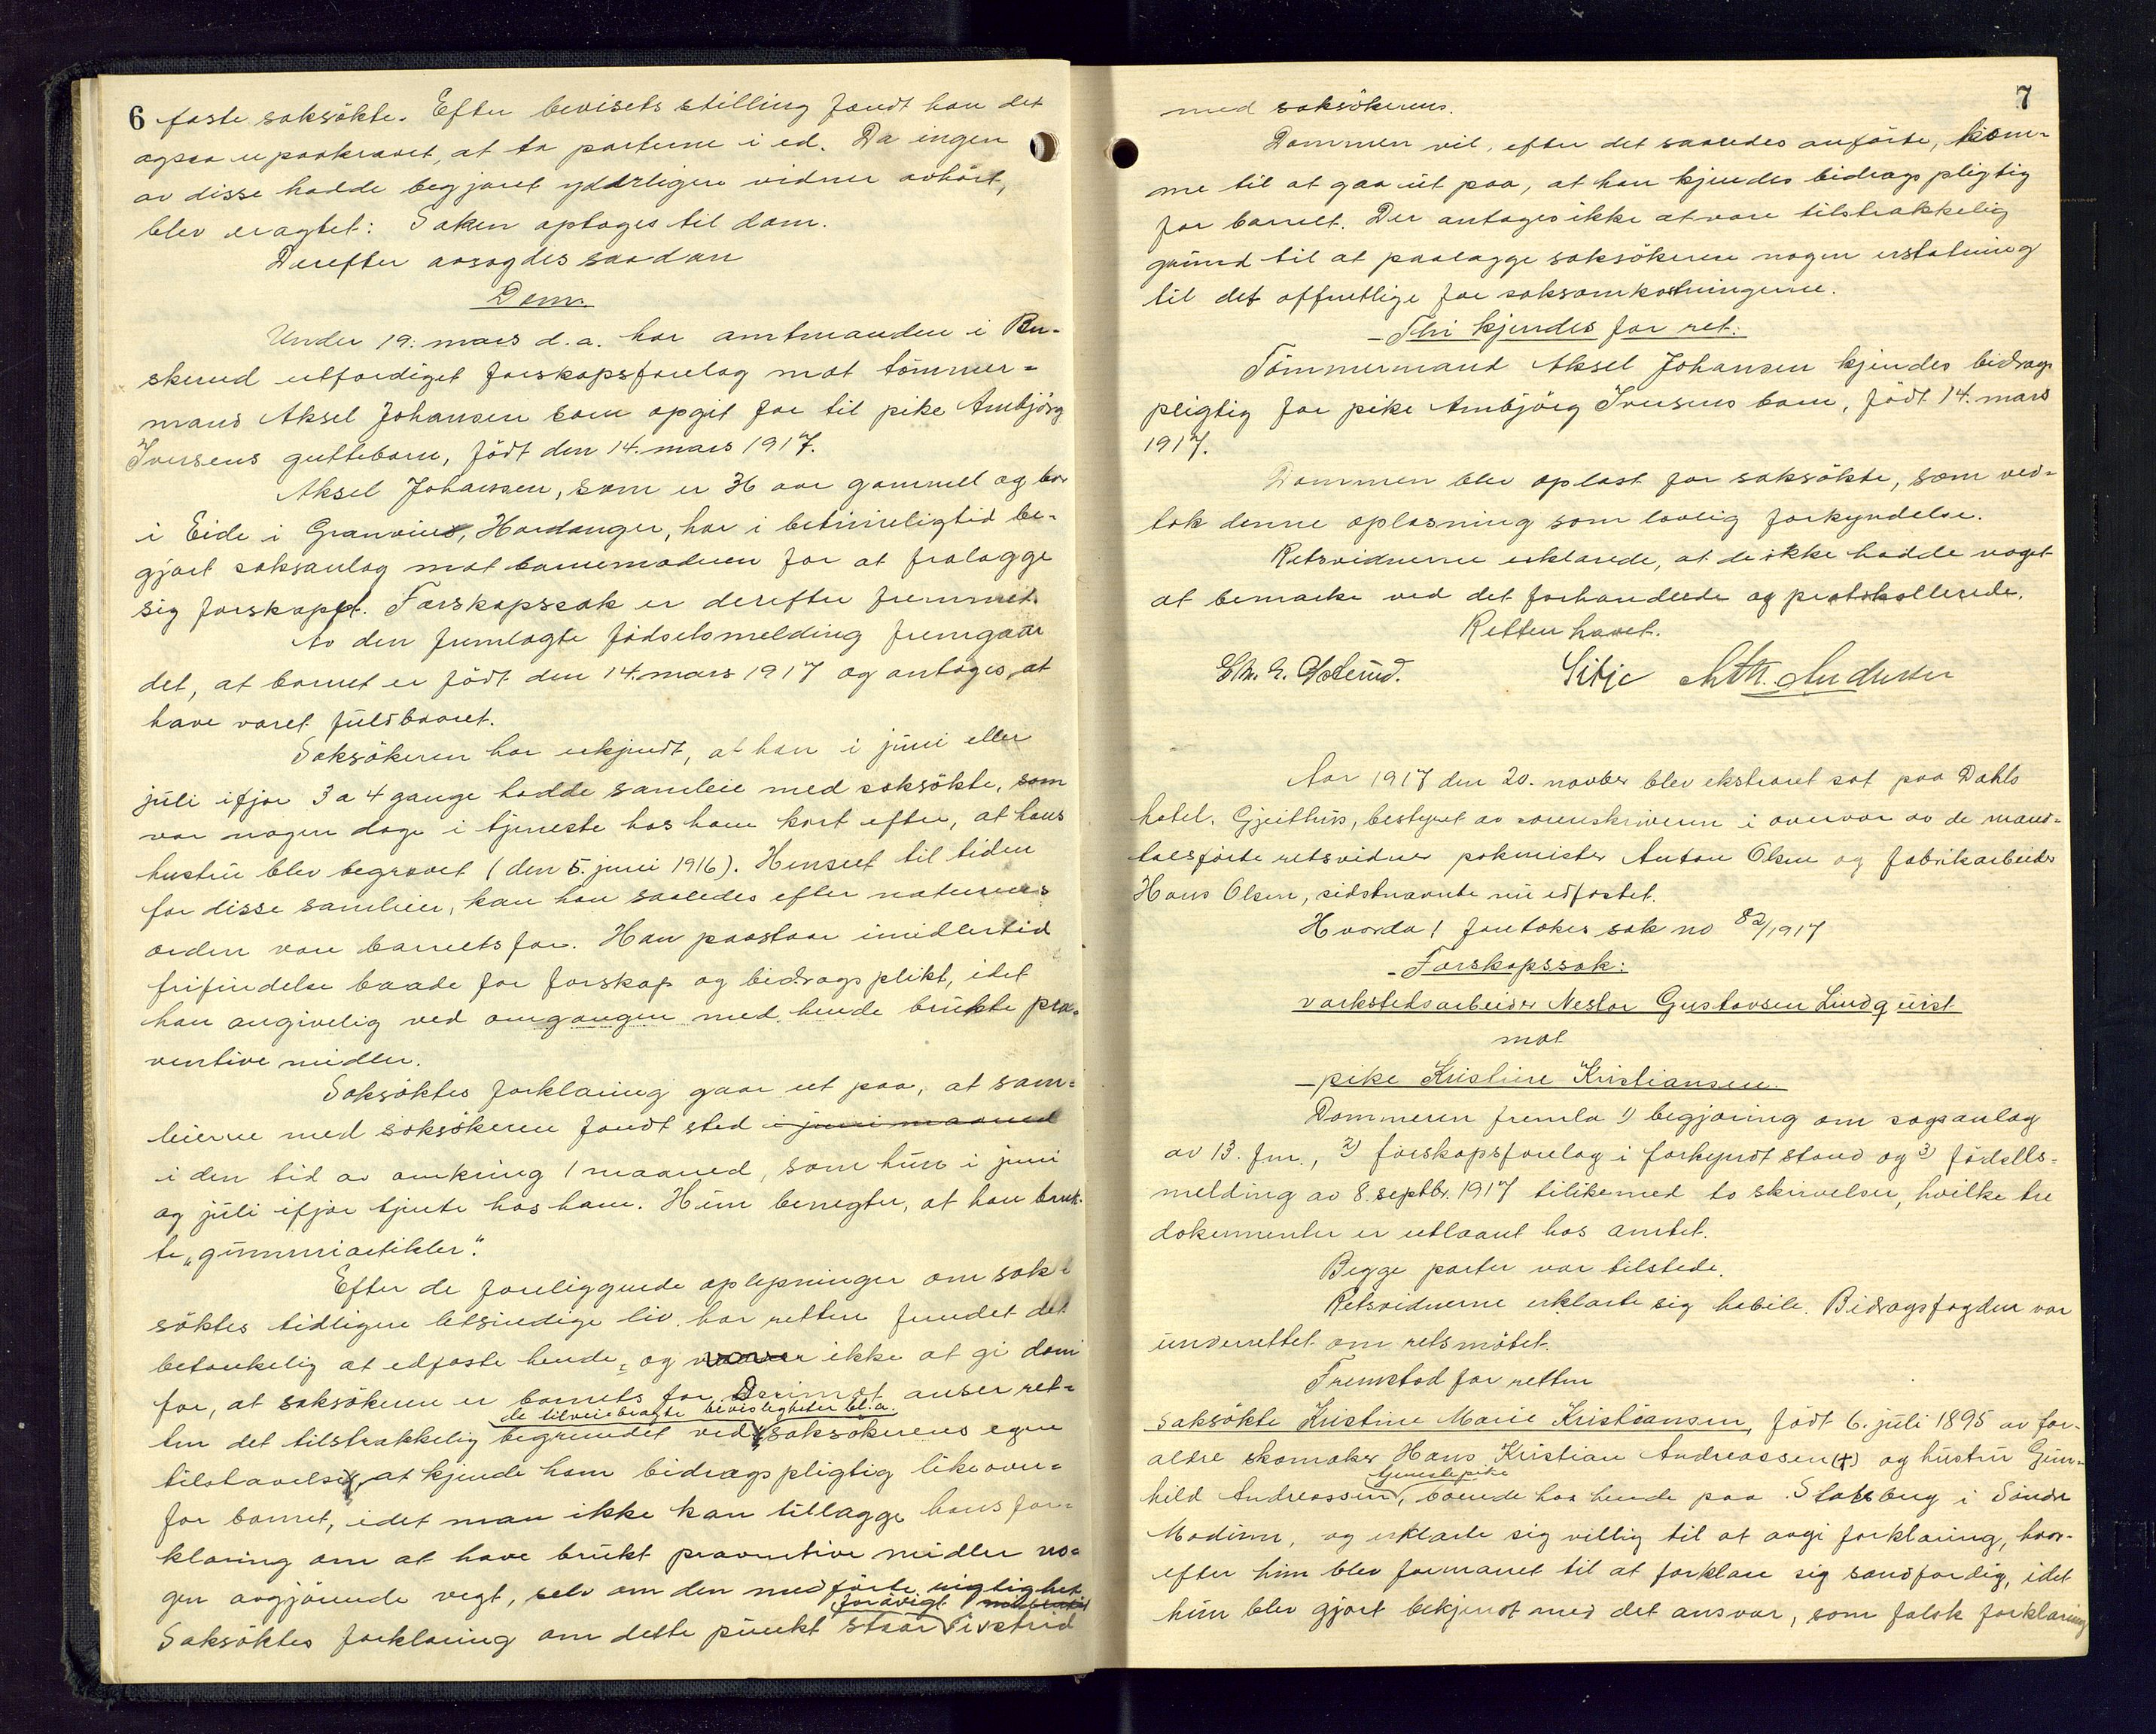 6
faste saksökte. Efter bevisets stilling fandt han det
ogsaa upaakrævet, at ta parterne i ed. Da ingen
av disse hadde begjæret yderligere vidner avhört,
blev eragtet: Saken optages til dom.
Derefter avsagdes saadan
Dom.
Under 19. mars d.a. har amtmanden i Bu-
skerud utfærdiget farskapsforelæg mot tömmer-
mand Aksel Johansen som opgit far til pike Ambjörg
Iversens guttebarn, födt den 14. mars 1917.
Aksel Johansen, som er 36 aar gammel og bor
i Eide i Granvin, Hardanger, har i betimelig tid be-
gjært saksanlæg mot barnemoderen for at fralægge
sig farskapet. Farskapssak er derefter fremmet.
Av den fremlagte födselsmelding fremgaar
det, at barnet er födt den 14. mars 1917 og antages at
have været fuldbaaret.
Saksökeren har erkjendt, at han i juni eller
juli ifjor 3 a 4 gange hadde samleie med saksökte, som
var nogen dage i tjeneste hos ham kort efter, at hans
hustru blev begravet (den 5. juni 1916). Henseet til tiden
for disse samleier, kan han saaledes efter naturens
orden være barnets far. Han paastaar imidlertid
frifindelse baade for farskap og bidragsplikt, idet
han angivelig ved omgangen med hende brukte præ-
ventive midler.
Saksöktes forklaring gaar ut paa, at sam-
leierne med saksökeren fandt sted i juni maaned
i den tid av omkring 1 maaned, som hun i juni
og juli ifjor tjente hos ham. Hun benegter, at han bruk-
te „gummiartikler".
Efter de foreliggende oplysninger om sak-
söktes tidligere letsindige liv har retten fundet det
betænkelig at edfæste hende, og vover ikke at gi dom
for, at saksökeren er barnets far. Derimot anser ret-
de tilveiebragte bevisligheter bl.a.
ten det tilstrækkelig begrundet ved saksökerens egen
tilstaaelse, at kjende ham bidragspligtig likeover-
for barnet, idet man ikke kan tillægge hans for-
klaring om at have brukt præventive midler no-
gen avgjörende vegt, selv om den medförte rigtighet
forövrigt
Saksöktes forklaring om dette punkt staar i strid
7
med saksökerens.
Dommen vil, efter det saaledes anförte, kom-
me til at gaa ut paa, at han kjendes bidragspligtig
for barnet. Der antages ikke at være tilstrækkelig
grund til at paalægge saksökeren nogen erstatning
til det offentlige for saksomkostningerne.
Thi kjendes for ret:
Tömmermand Aksel Johansen kjendes bidrags
pligtig for pike Ambjörg Iversens barn, födt 14. mars
1917.
Dommen blev oplæst for saksökte, som ved-
tok denne oplæsning som lovlig forkyndelse.
Retsvidnerne erklærede, at de ikke hadde noget
at bemærke ved det forhandlede og protokollerede.
Retten hævet.
Sitje Ath. Andersen
Aar 1917 den 20. novber blev ekstraret sat paa Dahls
hotel, Gjeithus, bestyret av sorenskriveren i overvær av de mand-
talsförte retsvidner pakmester Anton Olsen og fabrikarbeider
Hans Olsen, sidstnævnte nu edfæstet.
Hvorda! foretokes sak no 82/1917
Farskapssak:
verkstedsarbeider Nestor Gustavsen Lindqvist
mot
pike Kristine Kristiansen.
Dommeren fremla 1) begjæring om sagsanlæg
av 13. fm., 2) farskapsforelæg i forkyndt stand og 3) födsels-
melding av 8. septbr. 1917 tilikemed to skrivelser, hvilke tre
dokumenter er utlaant hos amtet.
Begge parter var tilstede.
Retsvidnerne erklærte sig habile. Bidragsfogden var
underrettet om retsmötet.
Fremstod for retten
saksökte Kristine Marie Kristiansen, födt 6. juli 1895 av for-
ældre skomaker Hans Kristian Andreassen (+) og hustru Gun-
tjenestepike
hild Andreassen, boende hos hende paa Stalsberg i Söndre
Modum, og erklærte sig villig til at avgi forklaring, hvor-
efter hun blev formanet til at forklare sig sandfærdig, idet
hun blev gjort bekjendt med det ansvar, som falsk forklaring